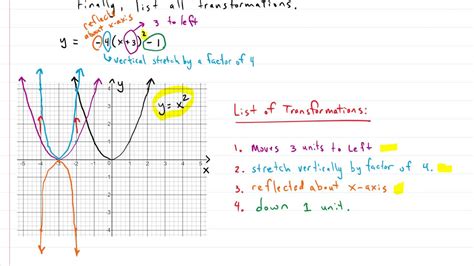 Finally, list all transformations.
reflected
about x-axis
3 to left
y = -4(x+3)² - 1
vertical stretch by a factor of 4
y
y = x²
4
3
2
1
-5 -4 -3 -2 -1 0 1 2 3 4 5
x
-1
-2
-3
-4
List of Transformations:
1. Moves 3 units to left
2. stretch vertically by factor of 4.
3. reflected about x-axis
4. down 1 unit.